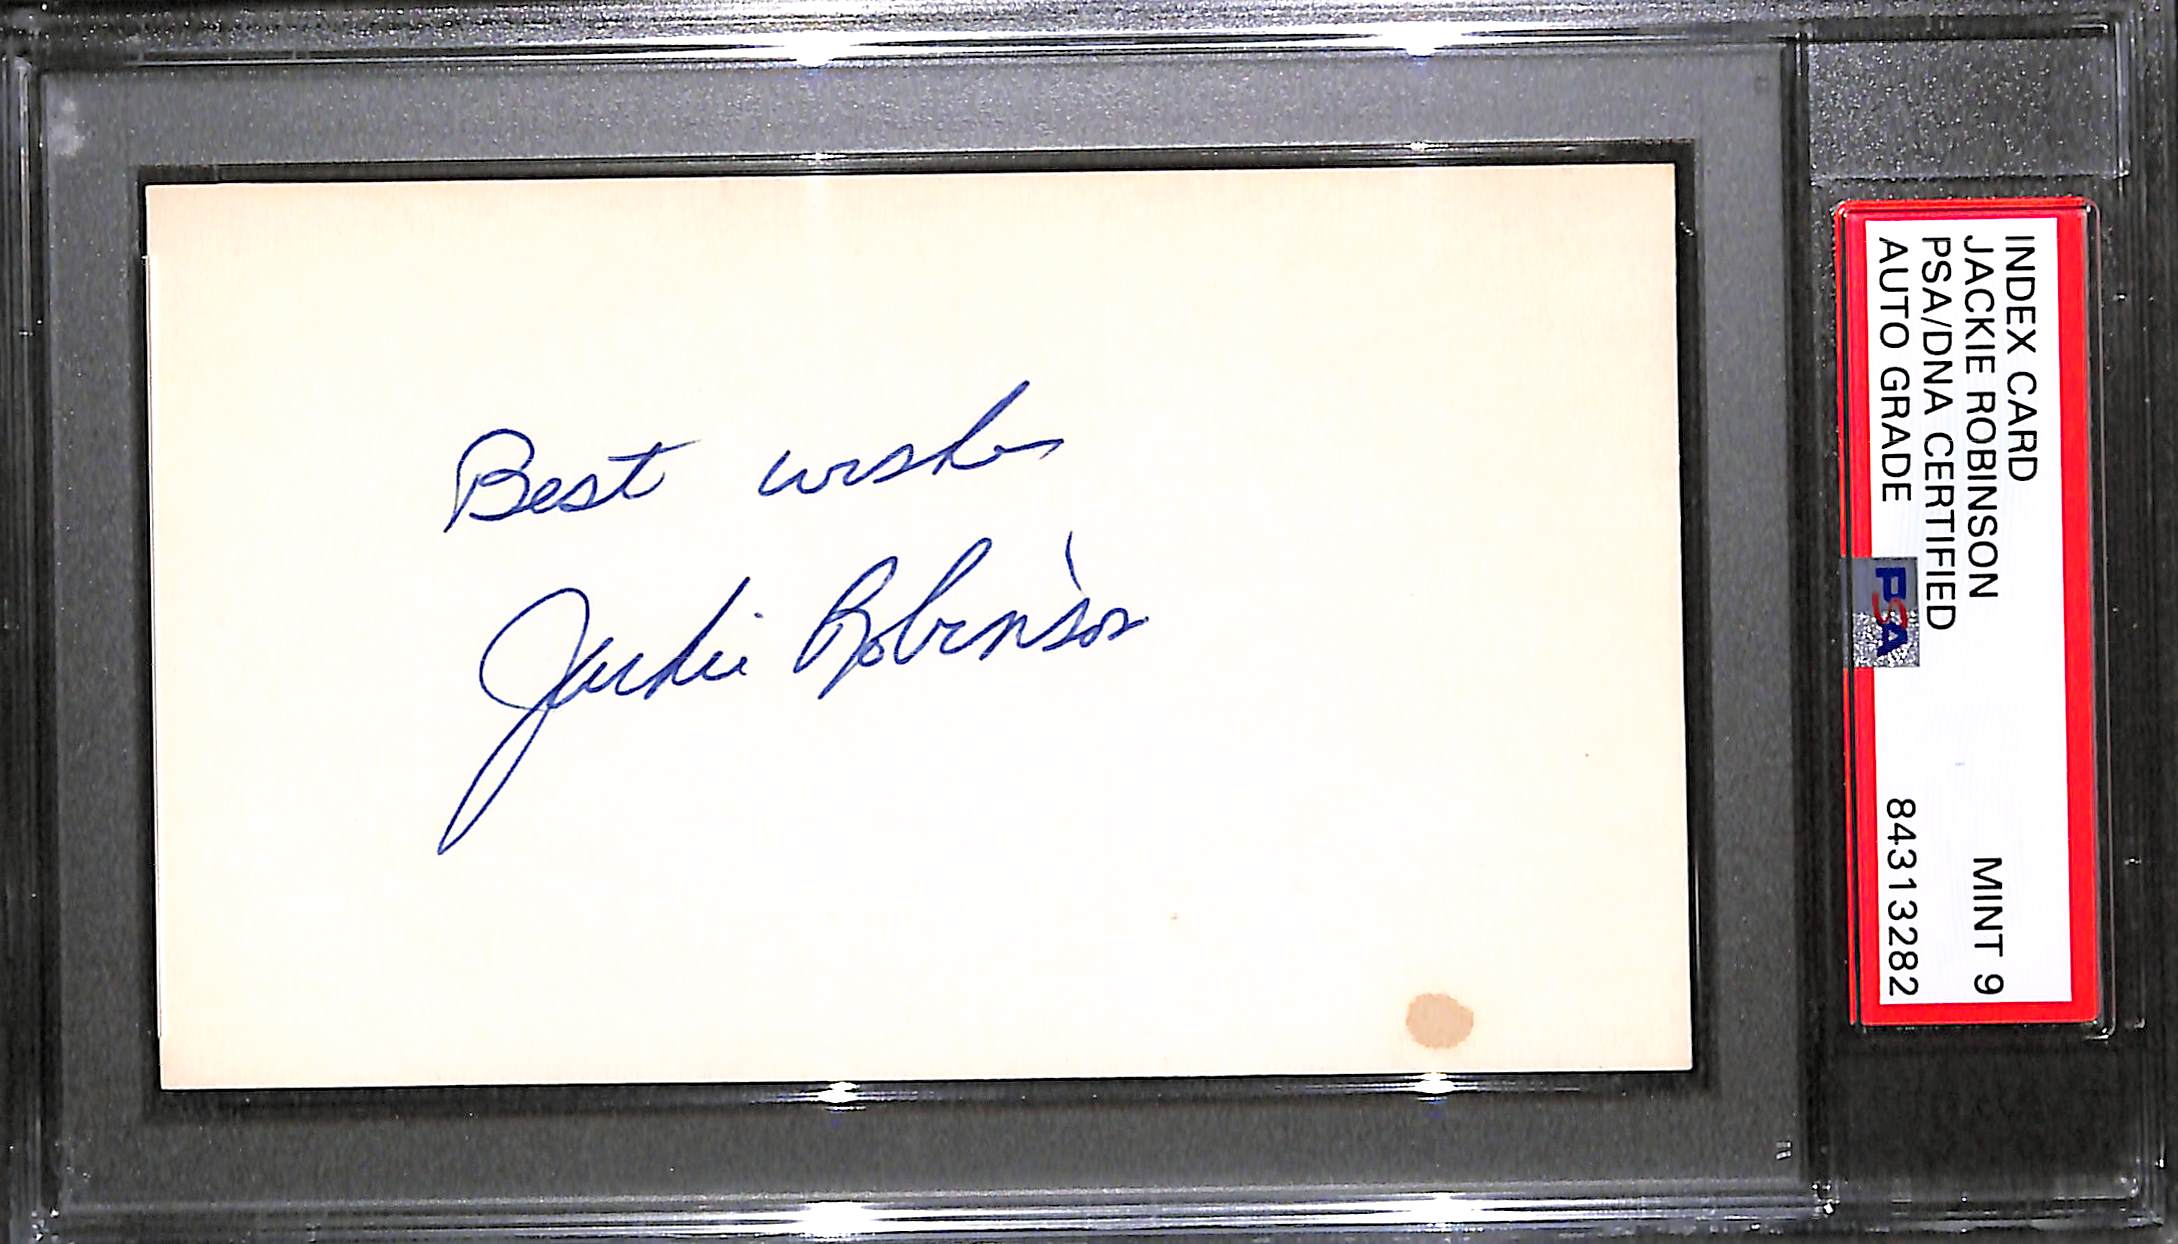 Best wishes
Jackie Robinson
INDEX CARD
JACKIE ROBINSON
PSA/DNA CERTIFIED
AUTO GRADE
MINT 9
84313282
PSA